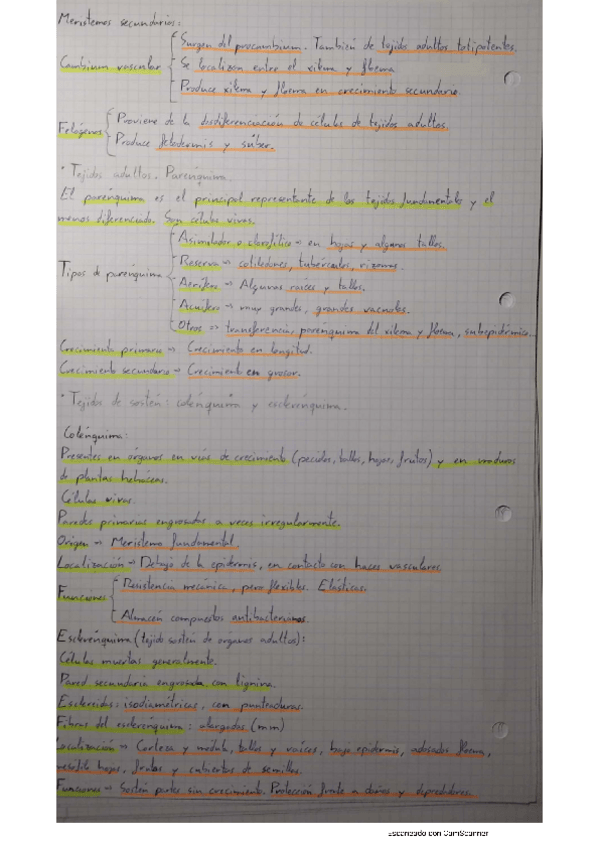 Meristemos secundarios:
Surgen del procambium. También de tejidos adultos totipotentes.
Cambium vascular
Se localizan entre el xilema y floema
Produce xilema y floema en crecimiento secundario.
Proviene de la desdiferenciación de células de tejidos adultos.
Felógeno
Produce felodermis y súber.
· Tejidos adultos. Parénquima.
El parénquima es el principal representante de los tejidos fundamentales y el
menos diferenciado. Son células vivas.
Asimilador o clorofílico → en hojas y algunos tallos.
Reserva → cotiledones, tubérculos, rizomas.
Tipos de parénquima
Aerífero → Algunas raíces y tallos.
Acuífero → muy grandes, grandes vacuolas.
Otros => transferencia, parénquima del xilema y floema, subepidérmico...
Crecimiento primario → Crecimiento en longitud.
Crecimiento secundario → Crecimiento en grosor.
· Tejidos de sostén: colénquima y esclerénquima.
Colénquima:
Presentes en órganos en vías de crecimiento (peciolos, tallos, hojas, frutos) y en maduros
de plantas herbáceas.
Células vivas.
Paredes primarias engrosadas a veces irregularmente.
Origen → Meristemo fundamental.
Localización → Debajo de la epidermis, en contacto con haces vasculares.
Resistencia mecánica, pero flexibles. Elásticas.
Funciones
Almacén compuestos antibacterianos.
Esclerénquima (tejido sostén de órganos adultos):
Células muertas generalmente.
Pared secundaria engrosada con lignina.
Esclereidas: isodiamétricas, con punteaduras.
Fibras del esclerénquima: alargadas (mm)
Localización → Corteza y médula, tallos y raíces, bajo epidermis, adosados floema,
hojas, frutos y cubiertas de semillas.
Funciones → Sostén partes sin crecimiento. Protección frente a daños y depredadores.
Escaneado con CamScanner